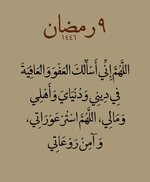 ٩ رمضان
١٤٤٦
اللَّهُمَّ إِنِّي أَسْأَلُكَ العَفْوَ وَالعَافِيَةَ
فِي دِينِي وَدُنْيَايَ وَأَهْلِي
وَمَالِي، اللَّهُمَّ اسْتُرْ عَوْرَاتِي،
وَآمِنْ رَوْعَاتِي